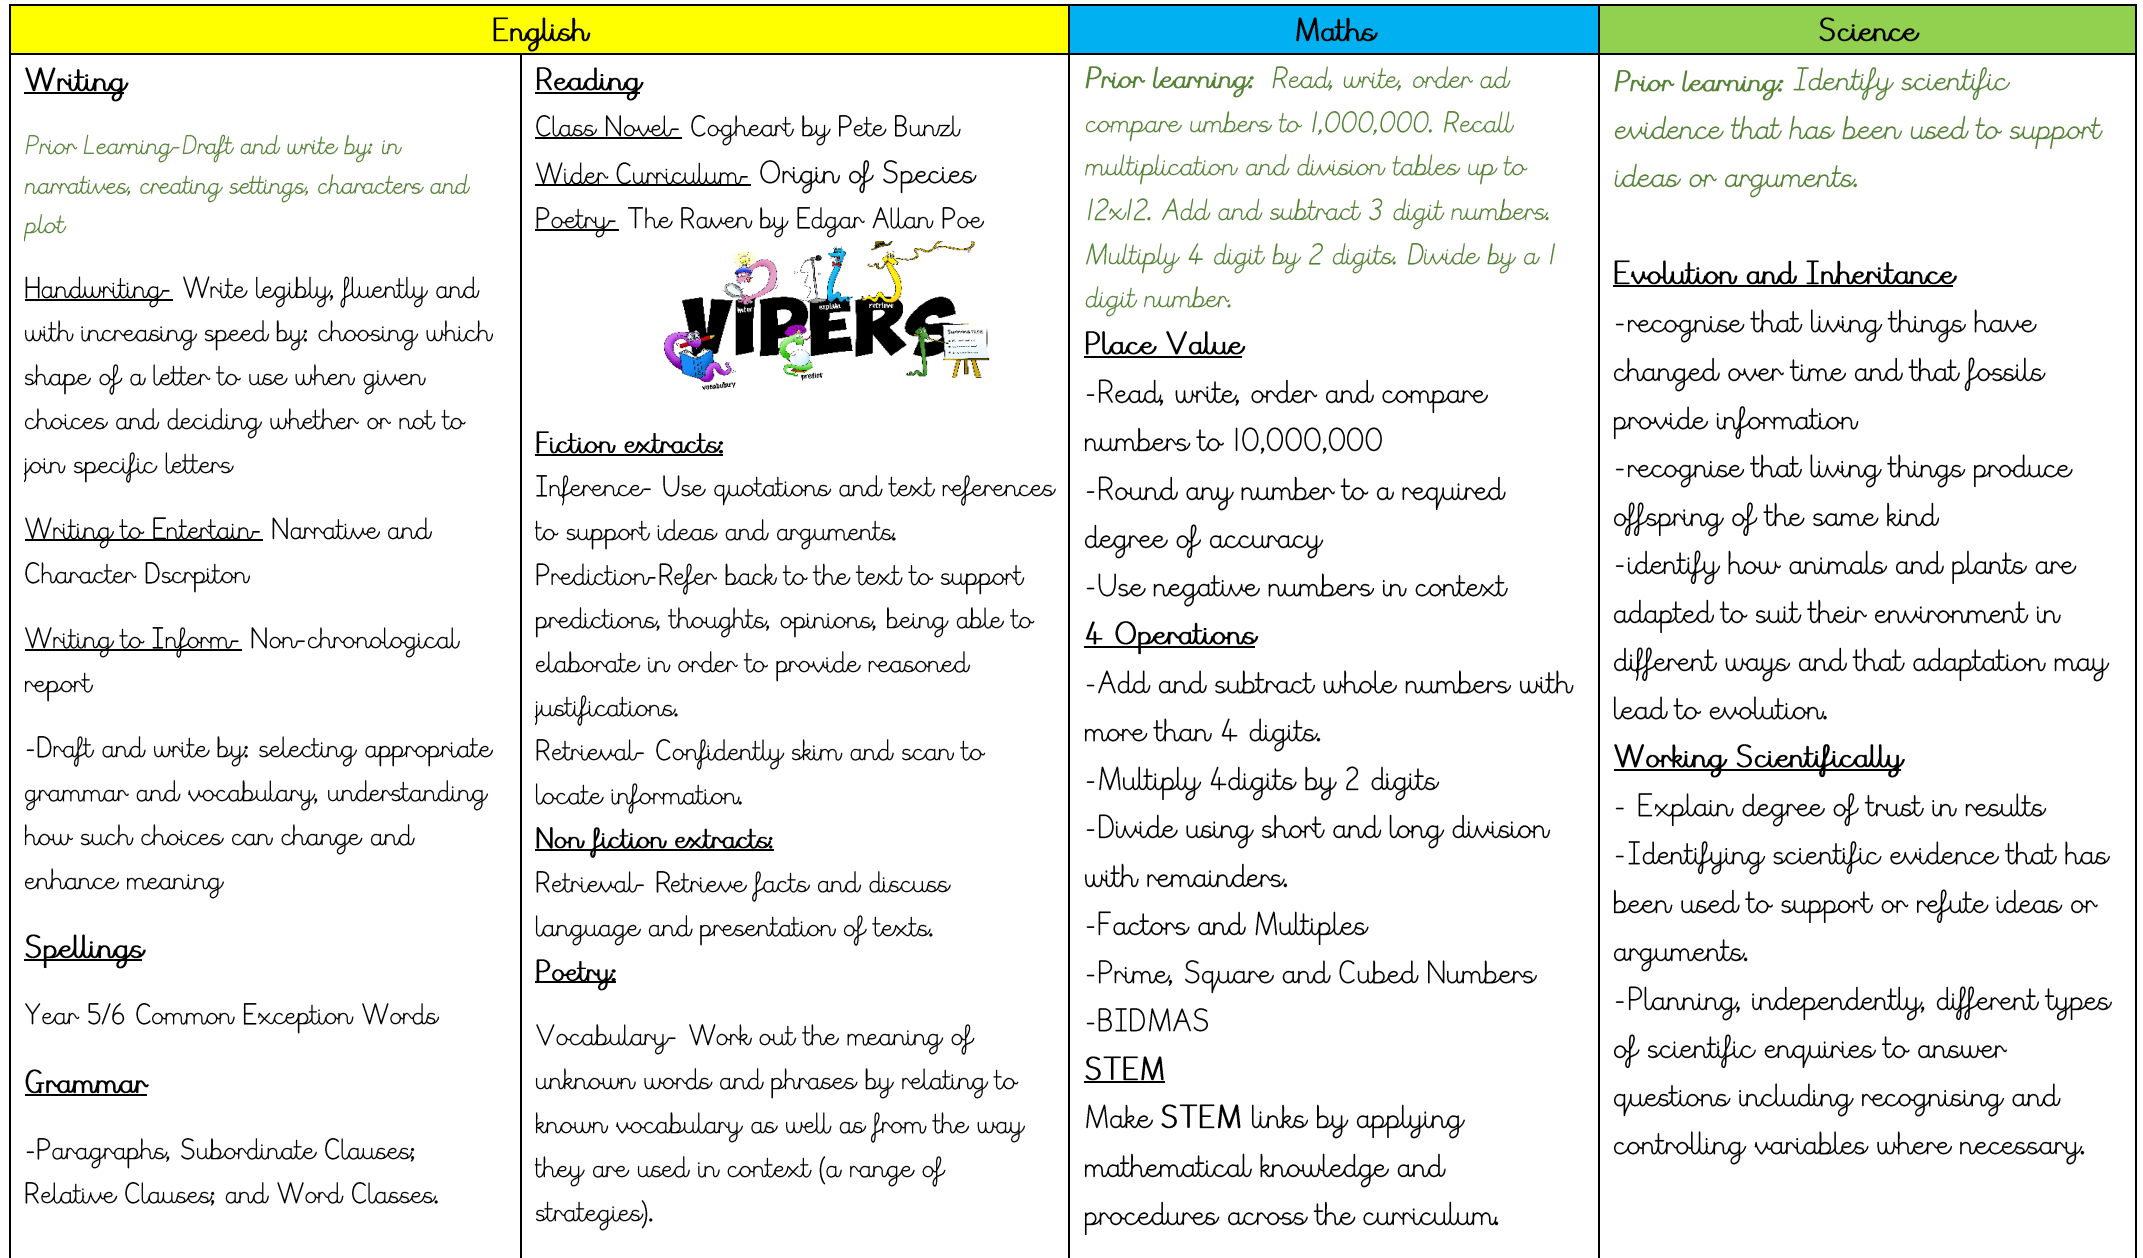 English
Writing
Prior Learning-Draft and write by: in
narratives, creating settings, characters and
plot
Handwriting- Write legibly, fluently and
with increasing speed by: choosing which
shape of a letter to use when given
choices and deciding whether or not to
join specific letters
Writing to Entertain- Narrative and
Character Dscrpiton
Writing to Inform- Non-chronological
report
-Draft and write by: selecting appropriate
grammar and vocabulary, understanding
how such choices can change and
enhance meaning
Spellings
Year 5/6 Common Exception Words
Grammar
-Paragraphs, Subordinate Clauses;
Relative Clauses; and Word Classes.
Reading
Class Novel- Cogheart by Pete Bunzl
Wider Curriculum- Origin of Species
Poetry- The Raven by Edgar Allan Poe
VIPERS
infer
explain
retrieve
vocabulary
predict
Fiction extracts:
Inference- Use quotations and text references
to support ideas and arguments.
Prediction-Refer back to the text to support
predictions, thoughts, opinions, being able to
elaborate in order to provide reasoned
justifications.
Retrieval- Confidently skim and scan to
locate information.
Non fiction extracts:
Retrieval- Retrieve facts and discuss
language and presentation of texts.
Poetry:
Vocabulary- Work out the meaning of
unknown words and phrases by relating to
known vocabulary as well as from the way
they are used in context (a range of
strategies).
Maths
Prior learning: Read, write, order ad
compare umbers to 1,000,000. Recall
multiplication and division tables up to
12x12. Add and subtract 3 digit numbers.
Multiply 4 digit by 2 digits. Divide by a 1
digit number.
Place Value
-Read, write, order and compare
numbers to 10,000,000
-Round any number to a required
degree of accuracy
-Use negative numbers in context
4 Operations
-Add and subtract whole numbers with
more than 4 digits.
-Multiply 4digits by 2 digits
-Divide using short and long division
with remainders.
-Factors and Multiples
-Prime, Square and Cubed Numbers
-BIDMAS
STEM
Make STEM links by applying
mathematical knowledge and
procedures across the curriculum.
Science
Prior learning: Identify scientific
evidence that has been used to support
ideas or arguments.
Evolution and Inheritance
-recognise that living things have
changed over time and that fossils
provide information
-recognise that living things produce
offspring of the same kind
-identify how animals and plants are
adapted to suit their environment in
different ways and that adaptation may
lead to evolution.
Working Scientifically
- Explain degree of trust in results
-Identifying scientific evidence that has
been used to support or refute ideas or
arguments.
-Planning, independently, different types
of scientific enquiries to answer
questions including recognising and
controlling variables where necessary.